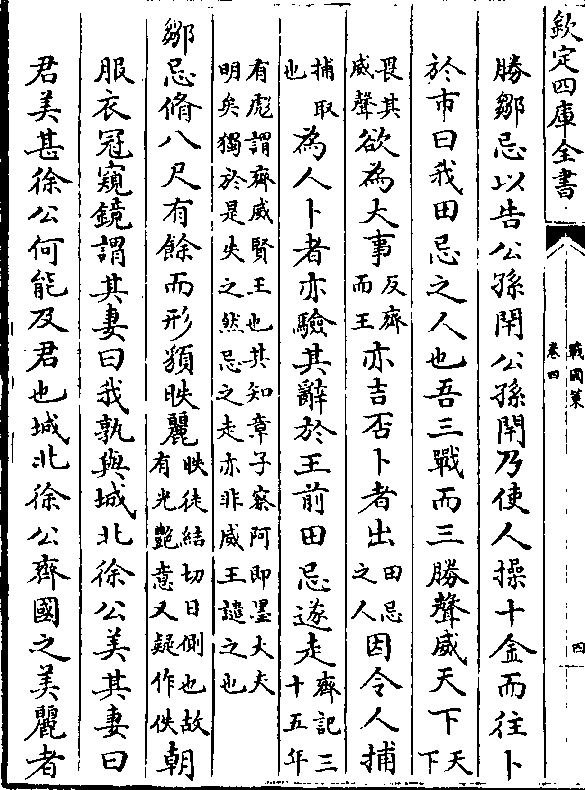 欽定四庫全書
戰國策
卷四
四
勝鄒忌以告公孫閈公孫閈乃使人操十金而往卜
於市曰我田忌之人也吾三戰而三勝聲威天下天下
畏其威聲欲為大事反齊而王亦吉否卜者出田忌之人因令人捕
捕取也為人卜者亦驗其辭於王前田忌遂走齊記三十五年
有彪謂齊威賢王也其知章子察阿即墨大夫
明矣獨於是失之然忌之走亦非威王譴之也
鄒忌脩八尺有餘而形䫉昳麗昳徒結切日側也故有光艶意又疑作佚朝
服衣冠窺鏡謂其妻曰我孰與城北徐公美其妻曰
君美甚徐公何能及君也城北徐公齊國之美麗者